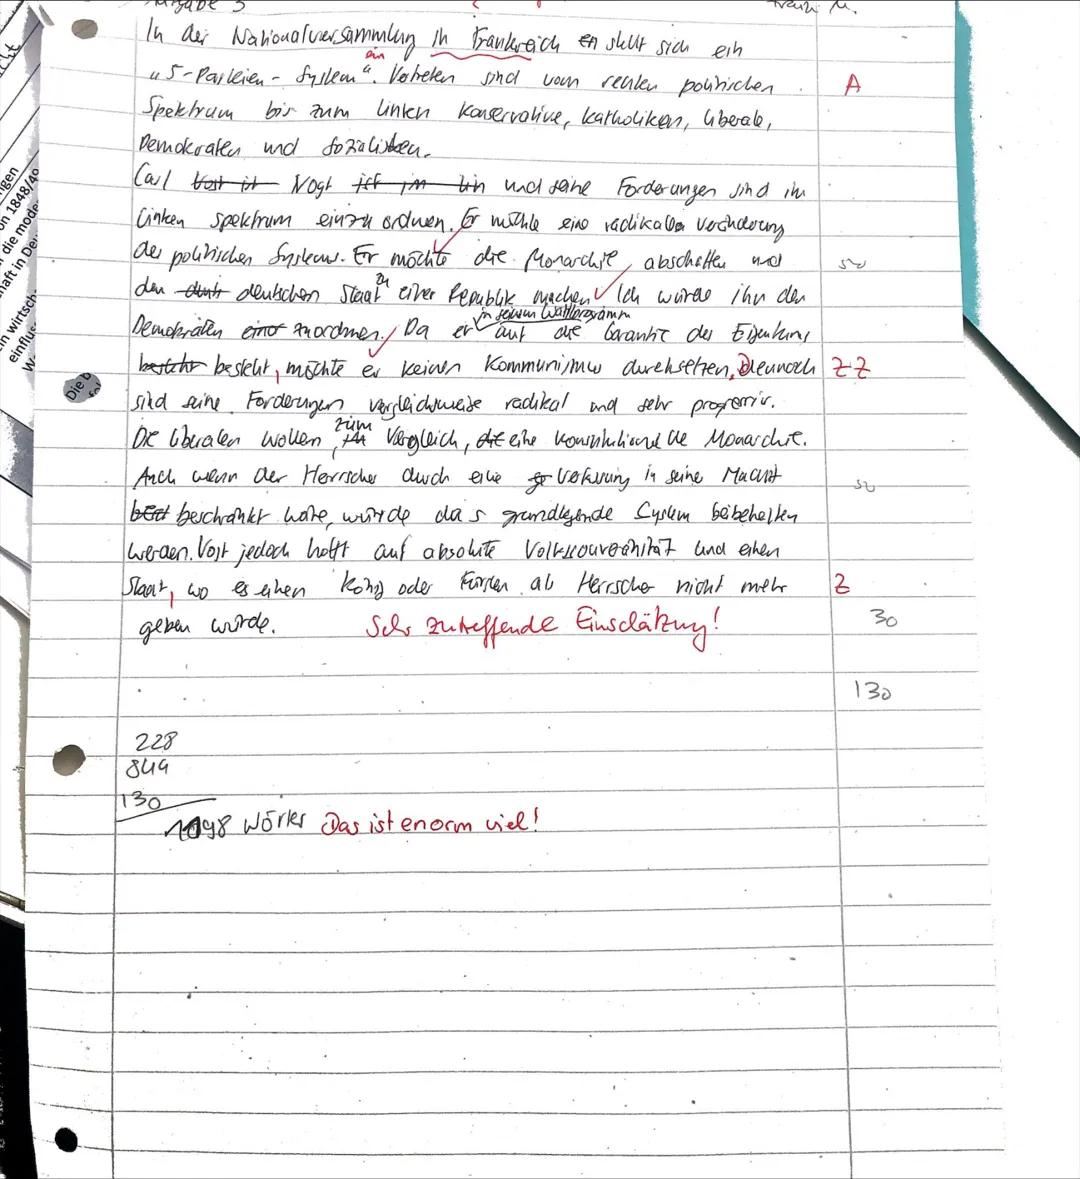 Aufgabe 3
In der Nationalversammlung in Frankreich en stellt sich ein
ein
"5-Parteien-System". Vertreten sind vom rechten politischen
A
Spektrum bis zum linken Konservative, Katholiken, Liberale,
Demokraten und Sozialisten.
Carl Vogt ist Vogt ist im lin und seine Forderungen sind im
linken Spektrum einzu ordnen. Er möchte eine radikale Veränderung
des politischen Systems. Er möchte die Monarchie abschaffen und
50
zu
den deutschen Staat einer Republik machen. Ich würde ihn den
in seinem Wahlprogramm
Demokraten einor zuordnen. Da er auf die Garantie des Eigentums
besteht besteht, möchte er keinen Kommunismus durchsetzen, Dennoch
Z Z
sind seine Forderungen vergleichsweise radikal und sehr progressiv.
zum
Die Liberalen wollen im Vergleich, die eine konstitutionelle Monarchie.
Auch wenn der Herrscher durch eine Verfassung in seine Macht
50
beschränkt wäre, würde das grundlegende System beibehalten
werden. Vogt jedoch hofft auf absolute Volkssouveränität und einen
Staat, wo es einen König oder Fürsten als Herrscher nicht mehr
Z
geben würde.
Sehr zutreffende Einschätzung!
30
130
228
849
130
1098 Wörter
Das ist enorm viel!
gen
on 1848/49
die mode
haft in Deu
n wirtsch
einflus
W
Die b